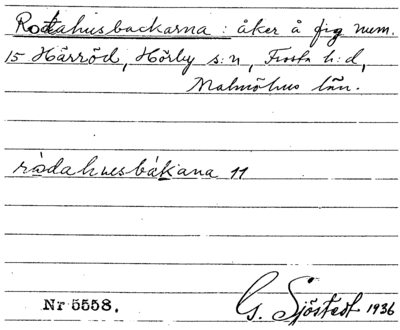 Rodahusbackarna: åker å fig num.
15 Härröd, Hörby s:n, Frosta h:d,
Malmöhus län.
rödahusbákana 11
Nr 5558.
G. Sjöstedt 1936